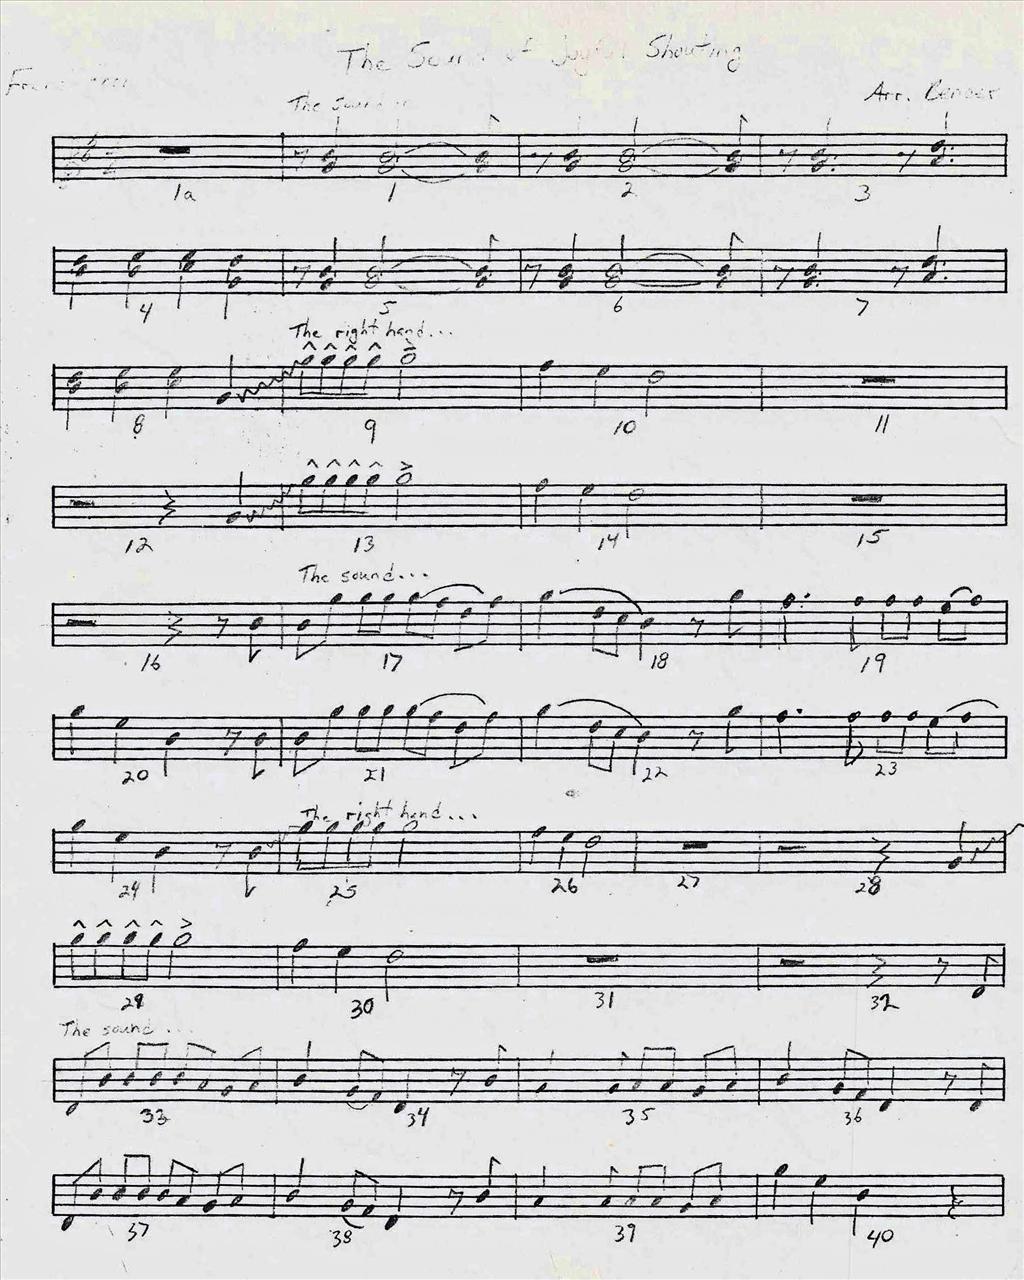 The Sound of Joyful Shouting
Arr. Bender
The sound
1a 1 2 3
4 5 6 7
The right hand...
8 9 10 11
12 13 14 15
The sound...
16 17 18 19
20 21 22 23
The right hand...
24 25 26 27 28
29 30 31 32
The sound ...
33 34 35 36
37 38 39 40